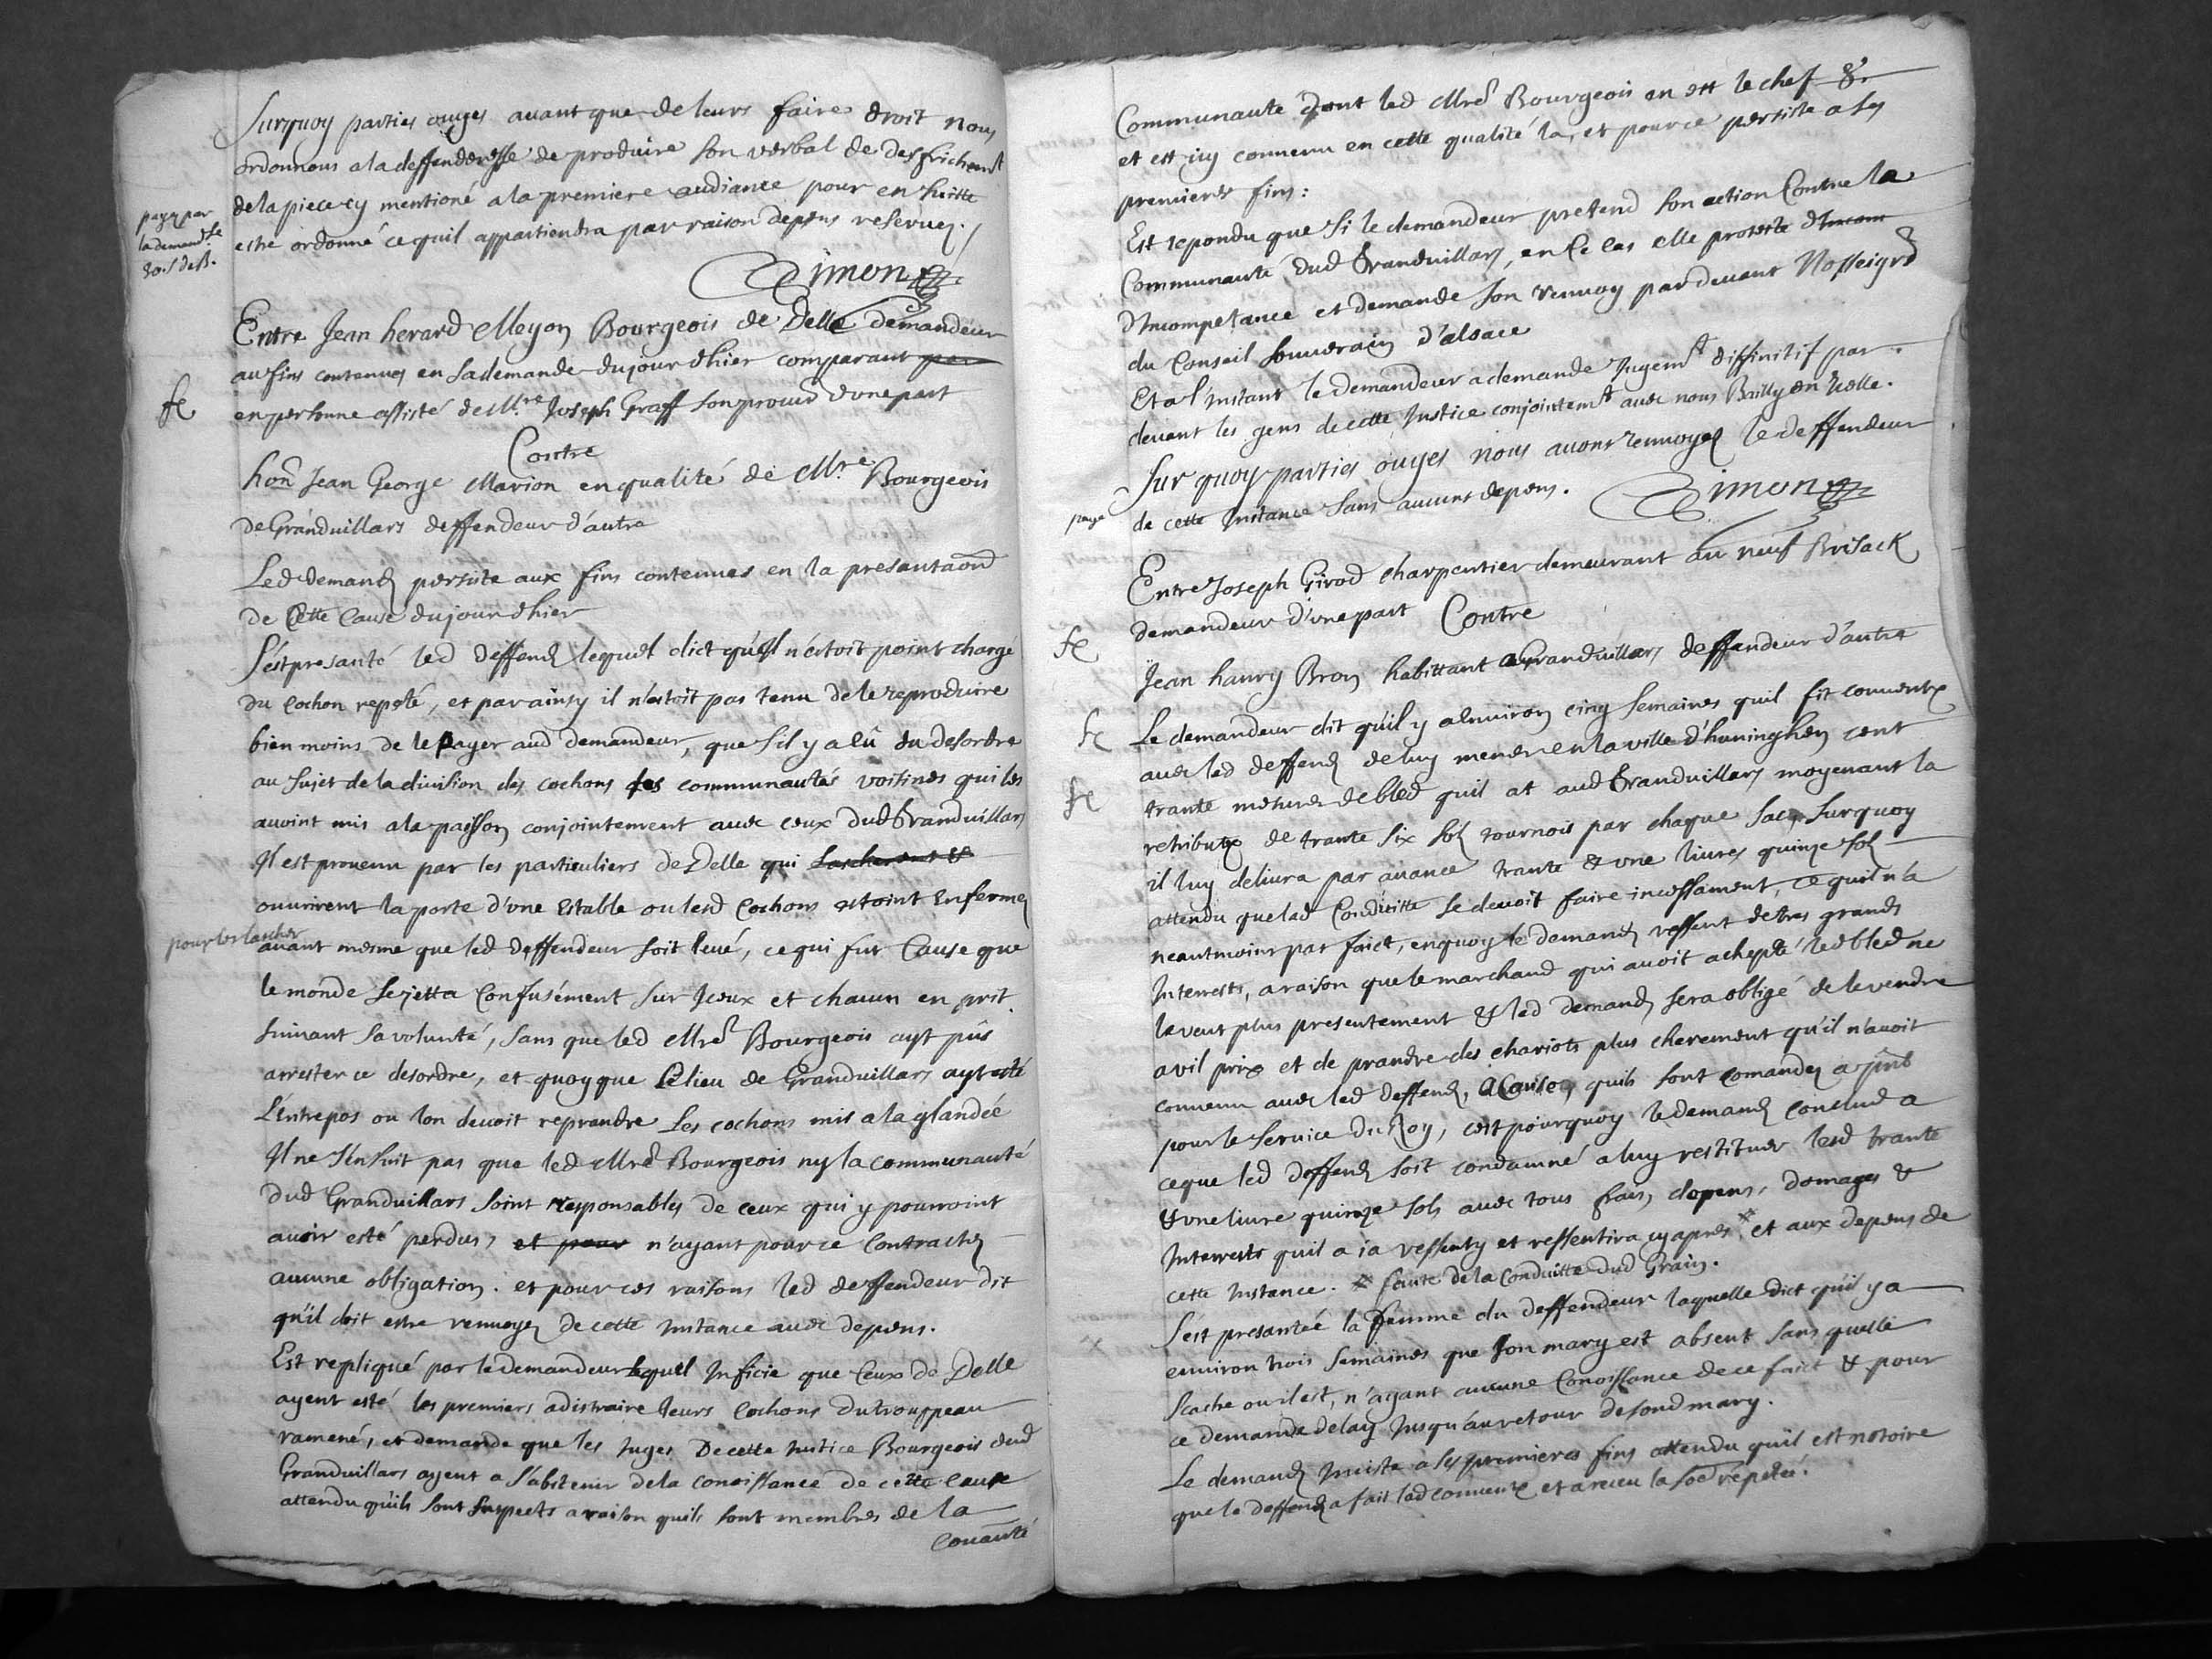 Surquoy parties ouyes auant que de leurs faire droit nous
ordonnons a la deffenderesse de produire son verbal de desfrichemt
de la piece cy mentioné a la premiere audiance pour en suitte
estre ordonné ce quil appartiendra par raison depens reseruez.
payé par
la demandse
Simon
Entre Jean herard Meyon Bourgeois de Delle demandeur
au fins contenues en sa demande du jour d'hier comparant par
en personne assisté de Mre Joseph Graff son procur d'vne part
Contre
hon Jean George Marion en qualité de Mre Bourgeois
de Granduillars deffendeur d'autre
Led demandr persiste aux fins contenues en la presantaõn
de Cette Cause du jour d'hier
S'est presanté led deffendr lequel dict qu'il n'estoit point chargé
du cochon repeté, et par ainsy il n'estoit pas tenu de le reproduire
bien moins de le payer aud demandeur, que s'il y a eû du desordre
au sujet de la diuision des cochons des communautés voisines qui les
auoint mis a la paisson conjointement auec ceux dud Granduillars
Il est prouenu par les particuliers de Delle qui Lascherent &
ouurirent la porte d'vne Estable ou lesd Cochons estoint Enfermez
pour les lascher
auant mesme que led deffendeur soit leué, ce qui fut Cause que
le monde se jetta Confusément sur Iceux et chacun en prit
suiuant sa volunté, sans que led Mre Bourgeois ayt pûs
arrester ce desordre, et quoyque Le lieu de Granduillars ayt esté
L'entrepos ou lon deuoit reprandre Les cochons mis a la glandée
Il ne s'ensuit pas que led Mre Bourgeois ny la communauté
dud Granduillars soint responsables de ceux qui y pourroint
auoir esté perdus, et pour n'ayant pour ce Contractez
aucune obligation. et pour ces raisons led deffendeur dit
qu'il doit estre renuoyez de cette Instance auec depens.
Est repliqué par le demandeur lequel Inficie que Ceux de Delle
ayent esté les premiers a distraire leurs Cochons du trouppeau
ramené, et demande que les Juges De cette Justice Bourgeois dud
Granduillars ayent a s'abstenir de la conoissance de cette cause
attendu qu'ils sont suspects a raison quils sont membres de la
Couauté
Communaute dont led Mre Bourgeois en est le chef &.
et est icy conuenu en cette qualité la, et pour ce persiste a ses
premieres fins:
Est repondu que si le demandeur pretend son action Contre la
Communauté dud Granduillars, en Ce cas elle proteste d'Incom
d'Incompetance et demande son renuoy pardeuant Nosseigrs
du Conseil souuerain d'alsace
Et a l'instant le demandeur a demande Jugemt diffinitif par
deuant les gens de cette Justice conjointemt auec nous Bailly en Icelle.
Sur quoy parties ouyes nous auons renuoyez le deffendeur
de cette Instance sans aucuns depens.
paye
Simon
Entre Joseph Girod charpentier demeurant au neuf Brisack
demandeur d'vne part Contre
Jean hanry Bron habittant a Granduillars deffendeur d'autre
Le demandeur dit qu'il y a enuiron cinq semaines quil fit conuent
auec led deffendr de luy mener en la ville d'huninghen cent
trante mesures de bled quil at aud Granduillars moyenant la
retribut de trante six solz tournois par chaque sac, surquoy
il luy deliura par auance trante & vne liures quinze solz
attendu que lad Conduitte se deuoit faire incessament, ce quil n'a
neantmoins pas faict, enquoy le demandr ressent de tres grands
Interrests, a raison que le marchand qui auoit achepté led bled ne
la veut plus presentement & led demandr sera obligé de le vendre
a vil prix et de prandre des chariots plus cherement qu'il n'auoit
conuenu auec led deffendr, a Cause quils sont comandez a
pour le seruice du Roy, cest pourquoy le demandr conclud a
ce que led deffendr soit condamné a luy restituer lesd trante
& vne liure quinze sols auec tous frais, depens, domages &
Interrests quil a ja ressenty et ressentira cy apres # et aux depens de
cette Instance. # faute de la Conduitte dud Grain.
S'est presantée la femme du deffendeur laquelle dict qu'il y a
enuiron trois semaines que son mary est absent sans quelle
scache ou il est, n'ayant aucune Conoissance de ce faict & pour
ce demande delay Jusqu'au retour de sond mary.
Le demandr Insiste a ses premieres fins attendu quil est notoire
que le deffendr a fait lad conuent et a receu la soẽ repetée.